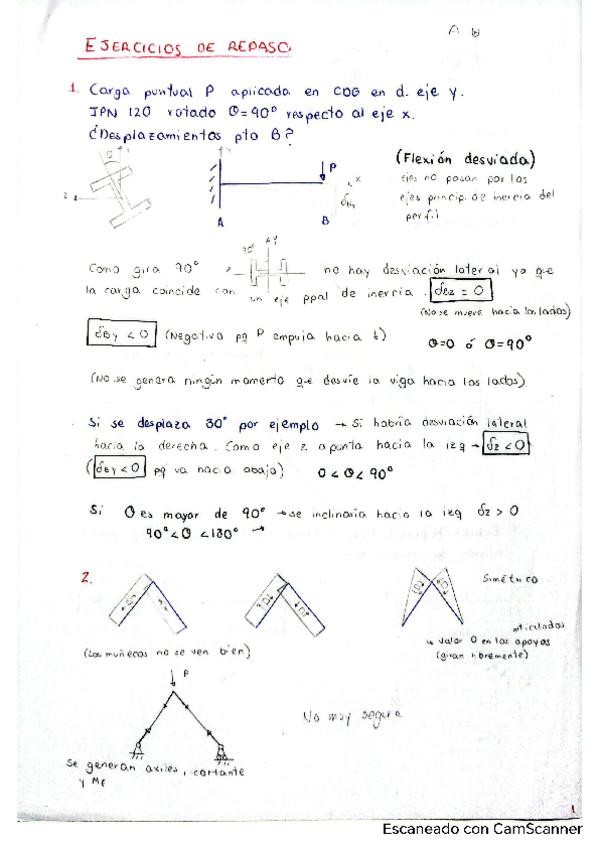 EJERCICIOS DE REPASO
1. Carga puntual P aplicada en CDG en d. eje y.
IPN 120 rotado θ=90° respecto al eje x.
¿Desplazamientos pto B?
(Flexión desviada)
ejes no pasan por los
ejes princip. de inercia del
perfil
θ
z
y
P
x
δBy
A
B
Como gira 90° z 90° y no hay desviación lateral ya que
la carga coincide con un eje ppal de inercia. δBz = 0
(No se mueve hacia los lados)
δBy < 0 (Negativo pq P empuja hacia b) θ=0 ó θ=90°
(No se genera ningún momento que desvíe la viga hacia los lados)
Si se desplaza 30° por ejemplo → Si habría desviación lateral
hacia la derecha. Como eje z apunta hacia la izq → δz < 0
(δBy < 0 pq va hacia abajo) 0 < θ < 90°
Si θ es mayor de 90° → se inclinaría hacia la izq δz > 0
90° < θ < 180° →
2.
Simétrico
articulados
↳ valor 0 en los apoyos
(giran libremente)
(Los muñecos no se ven bien)
P
No muy segura
Se generan axiles, cortante
y Mf
1
Escaneado con CamScanner